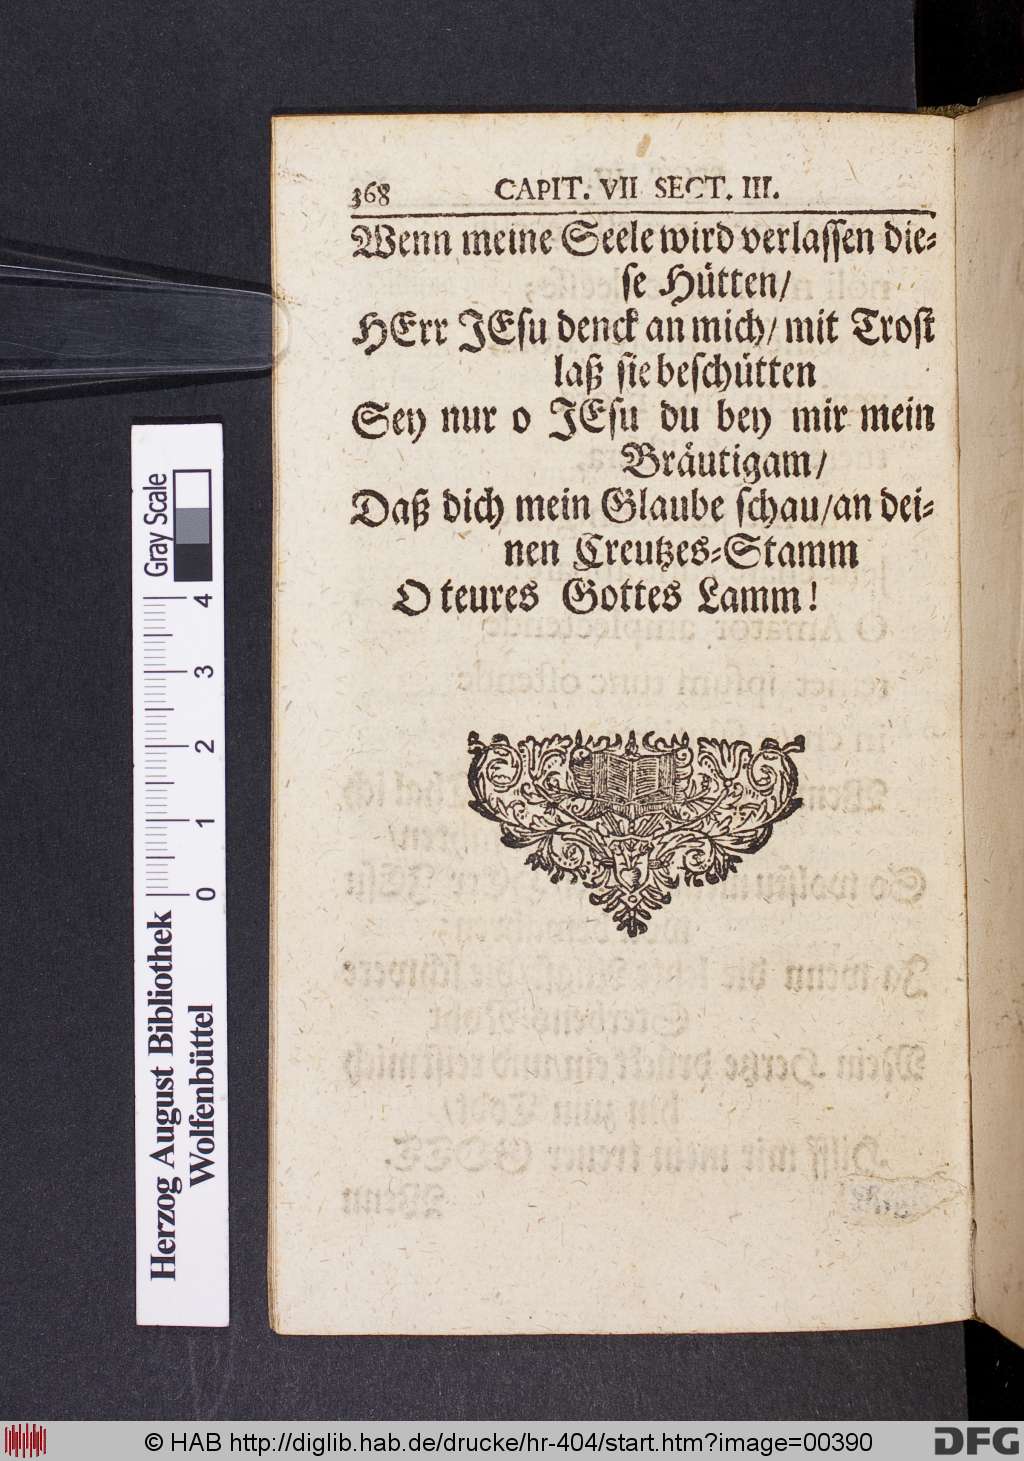 368 CAPIT. VII SECT. III.
Wenn meine Seele wird verlassen die-
se Hütten/
HErr JEsu denck an mich/ mit Trost
laß sie beschütten
Sey nur o JEsu du bey mir mein
Bräutigam/
Daß dich mein Glaube schau/an dei-
nen Creutzes-Stamm
O teures Gottes Lamm!
Gray Scale
4
3
2
1
0
Herzog August Bibliothek
Wolfenbüttel
© HAB http://diglib.hab.de/drucke/hr-404/start.htm?image=00390
DFG